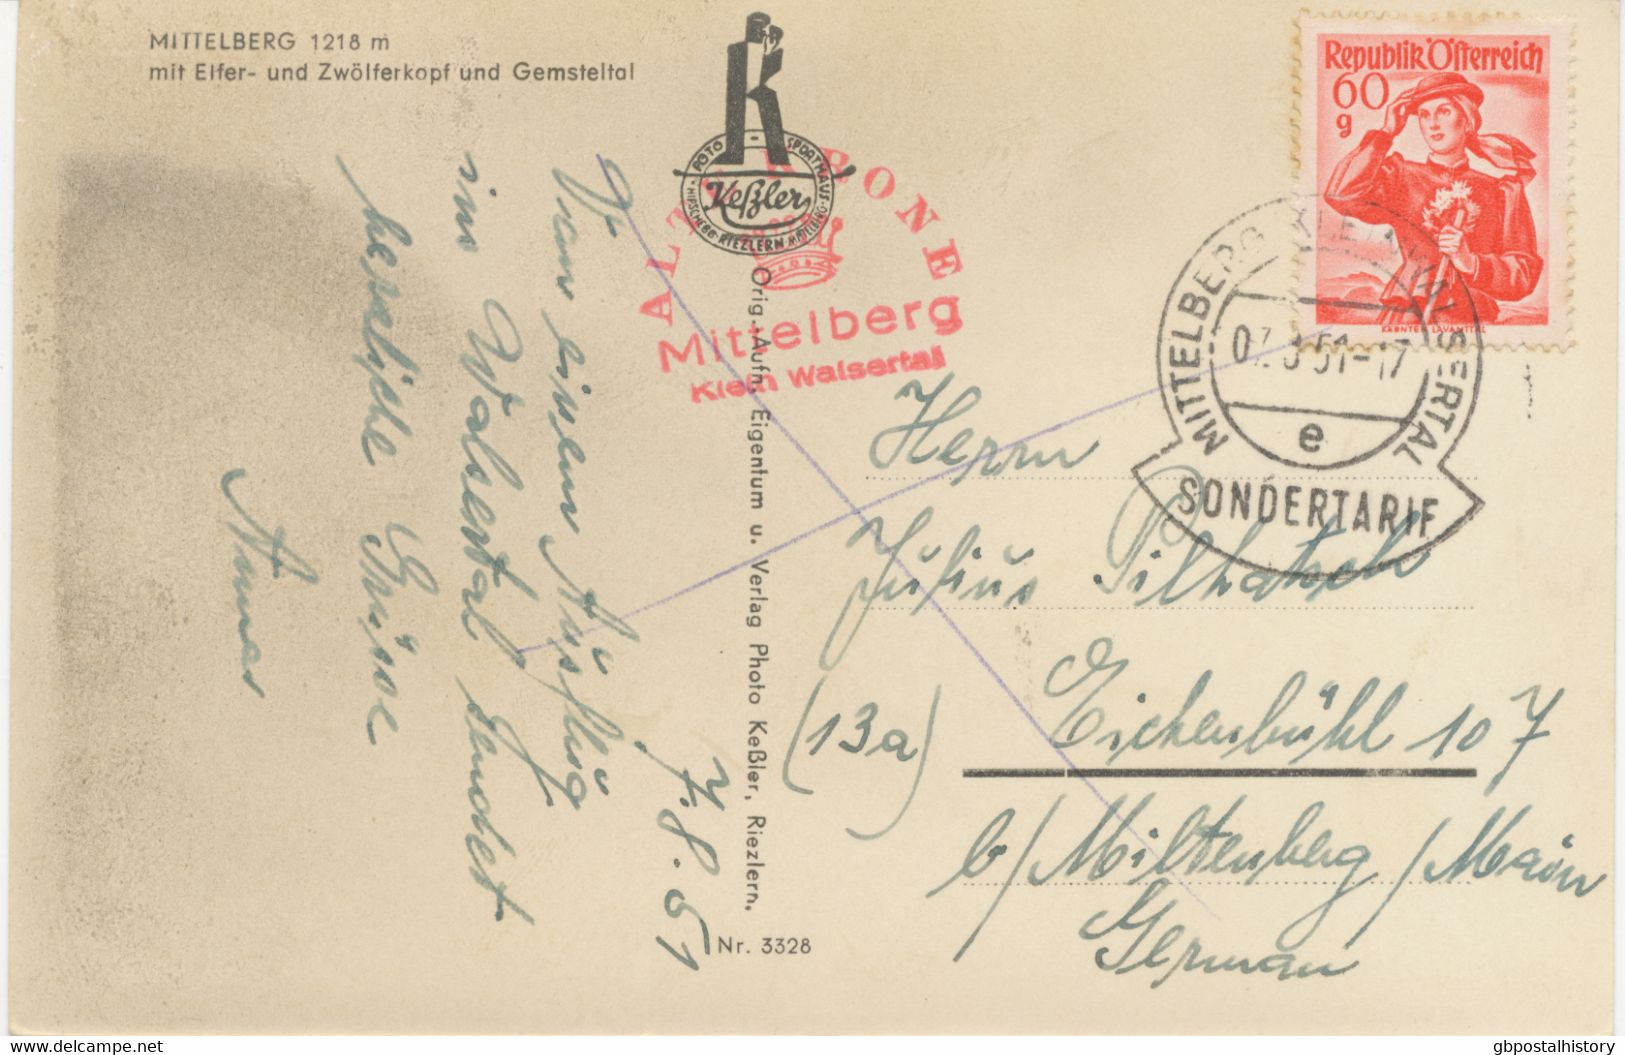 MITTELBERG 1218 m
mit Elfer- und Zwölferkopf und Gemsteltal
FOTO - SPORTHAUS
Keßler
HIRSCHEGG · RIEZLERN · MITTELBERG
ALTE KRONE
Mittelberg
Klein Walsertal
Republik Österreich
60
g
KÄRNTEN LAVANTTAL
MITTELBERG (KLEINWALSERTAL
51-17
e
SONDERTARIF
7.8.51
Von einem Ausflug
im Walsertal sendet
herzliche Grüsse
Orig. Aufn. Eigentum u. Verlag Photo Keßler, Riezlern.
Nr. 3328
Herrn
Julius
(13a) Eichenbühl 107
b/Miltenberg/Main
German
gbpostalhistory
www.delcampe.net